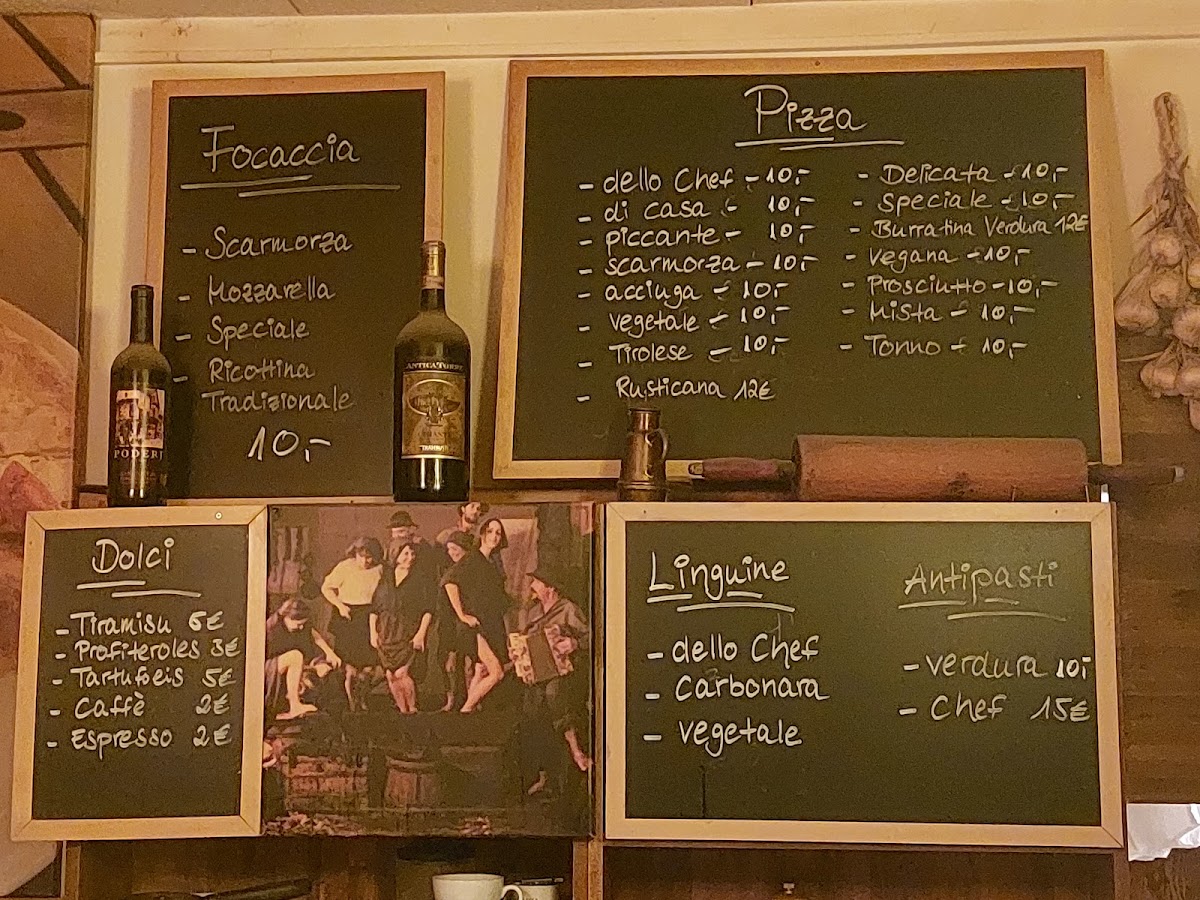 Focaccia
- Scarmorza
- Mozzarella
- Speciale
- Ricottina
Tradizionale
10,-
Pizza
- dello Chef - 10,-
- di casa - 10,-
- piccante - 10,-
- scarmorza - 10,-
- acciuga - 10,-
- vegetale - 10,-
- Tirolese - 10,-
- Rusticana 12€
- Delicata - 10,-
- Speciale - 10,-
- Burratina Verdura 12€
- vegana - 10,-
- Prosciutto - 10,-
- Mista - 10,-
- Tonno - 10,-
PODERI
ANTICA TORRE
Dolci
- Tiramisu 6€
- Profiteroles 3€
- Tartufoeis 5€
- Caffè 2€
- Espresso 2€
Linguine
- dello Chef
- Carbonara
- vegetale
Antipasti
- verdura 10,-
- Chef 15€